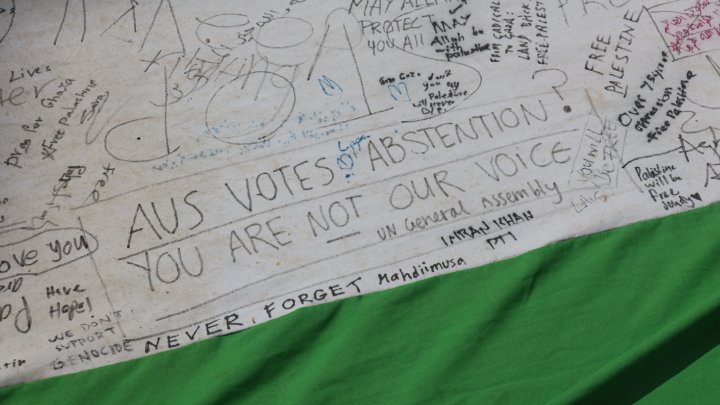 MAY ALLAH
PROTECT
YOU All
MAY
Allah be
with
Palestine
FROM
TO GAZA:
LAND BACK
FREE PALEST
FREE
PALESTINE
Over 75 years
oppression
Free Palestine
Palestine
will be
free
Lives
Pray for Ghaza
Free Palestine
don't
you cry
Palestine
will never
Die
AUS VOTES ABSTENTION!
YOU ARE NOT OUR VOICE
UN General Assembly
YOU WILL
BE FREE
IMRAN KHAN
PTI
love you
Free
Have
Hope!
WE DON'T
SUPPORT
GENOCIDE
NEVER, FORGET Mahdiimusa